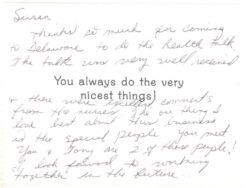 Susan
Thanks so much for coming
to Delaware to do the Health talk.
The talk was very well received
You always do the very
nicest things!
& there were excellent comments
from the nurses. The one thing I
love best about this business
is the special people you meet
You & Tony are 2 of those people!
I look forward to working
together in the future.